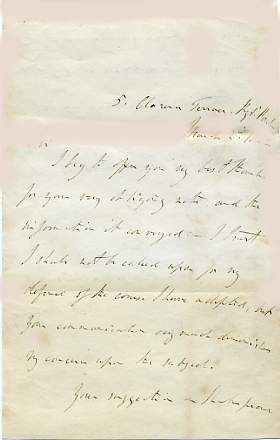 5. Clarence Terrace. Regts Park
I beg to offer you my best thanks
for your very obliging note, and the
information it conveyed – I trust
I shall not be called upon for my
defence of the course I have adopted, but
your communication very much diminishes
my concern upon the subject.
Your suggestion on Shakspeare